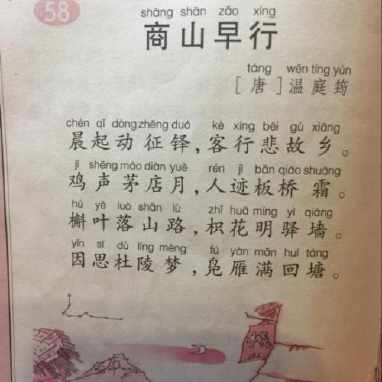 58
shāng shān zǎo xíng
商山早行
táng wēn tíng yún
[唐]温庭筠
chén qǐ dòng zhēng duó kè xíng bēi gù xiāng
晨起动征铎，客行悲故乡。
jī shēng máo diàn yuè rén jì bǎn qiáo shuāng
鸡声茅店月，人迹板桥霜。
hú yè luò shān lù zhǐ huā míng yì qiáng
槲叶落山路，枳花明驿墙。
yīn sī dù líng mèng fú yàn mǎn huí táng
因思杜陵梦，凫雁满回塘。